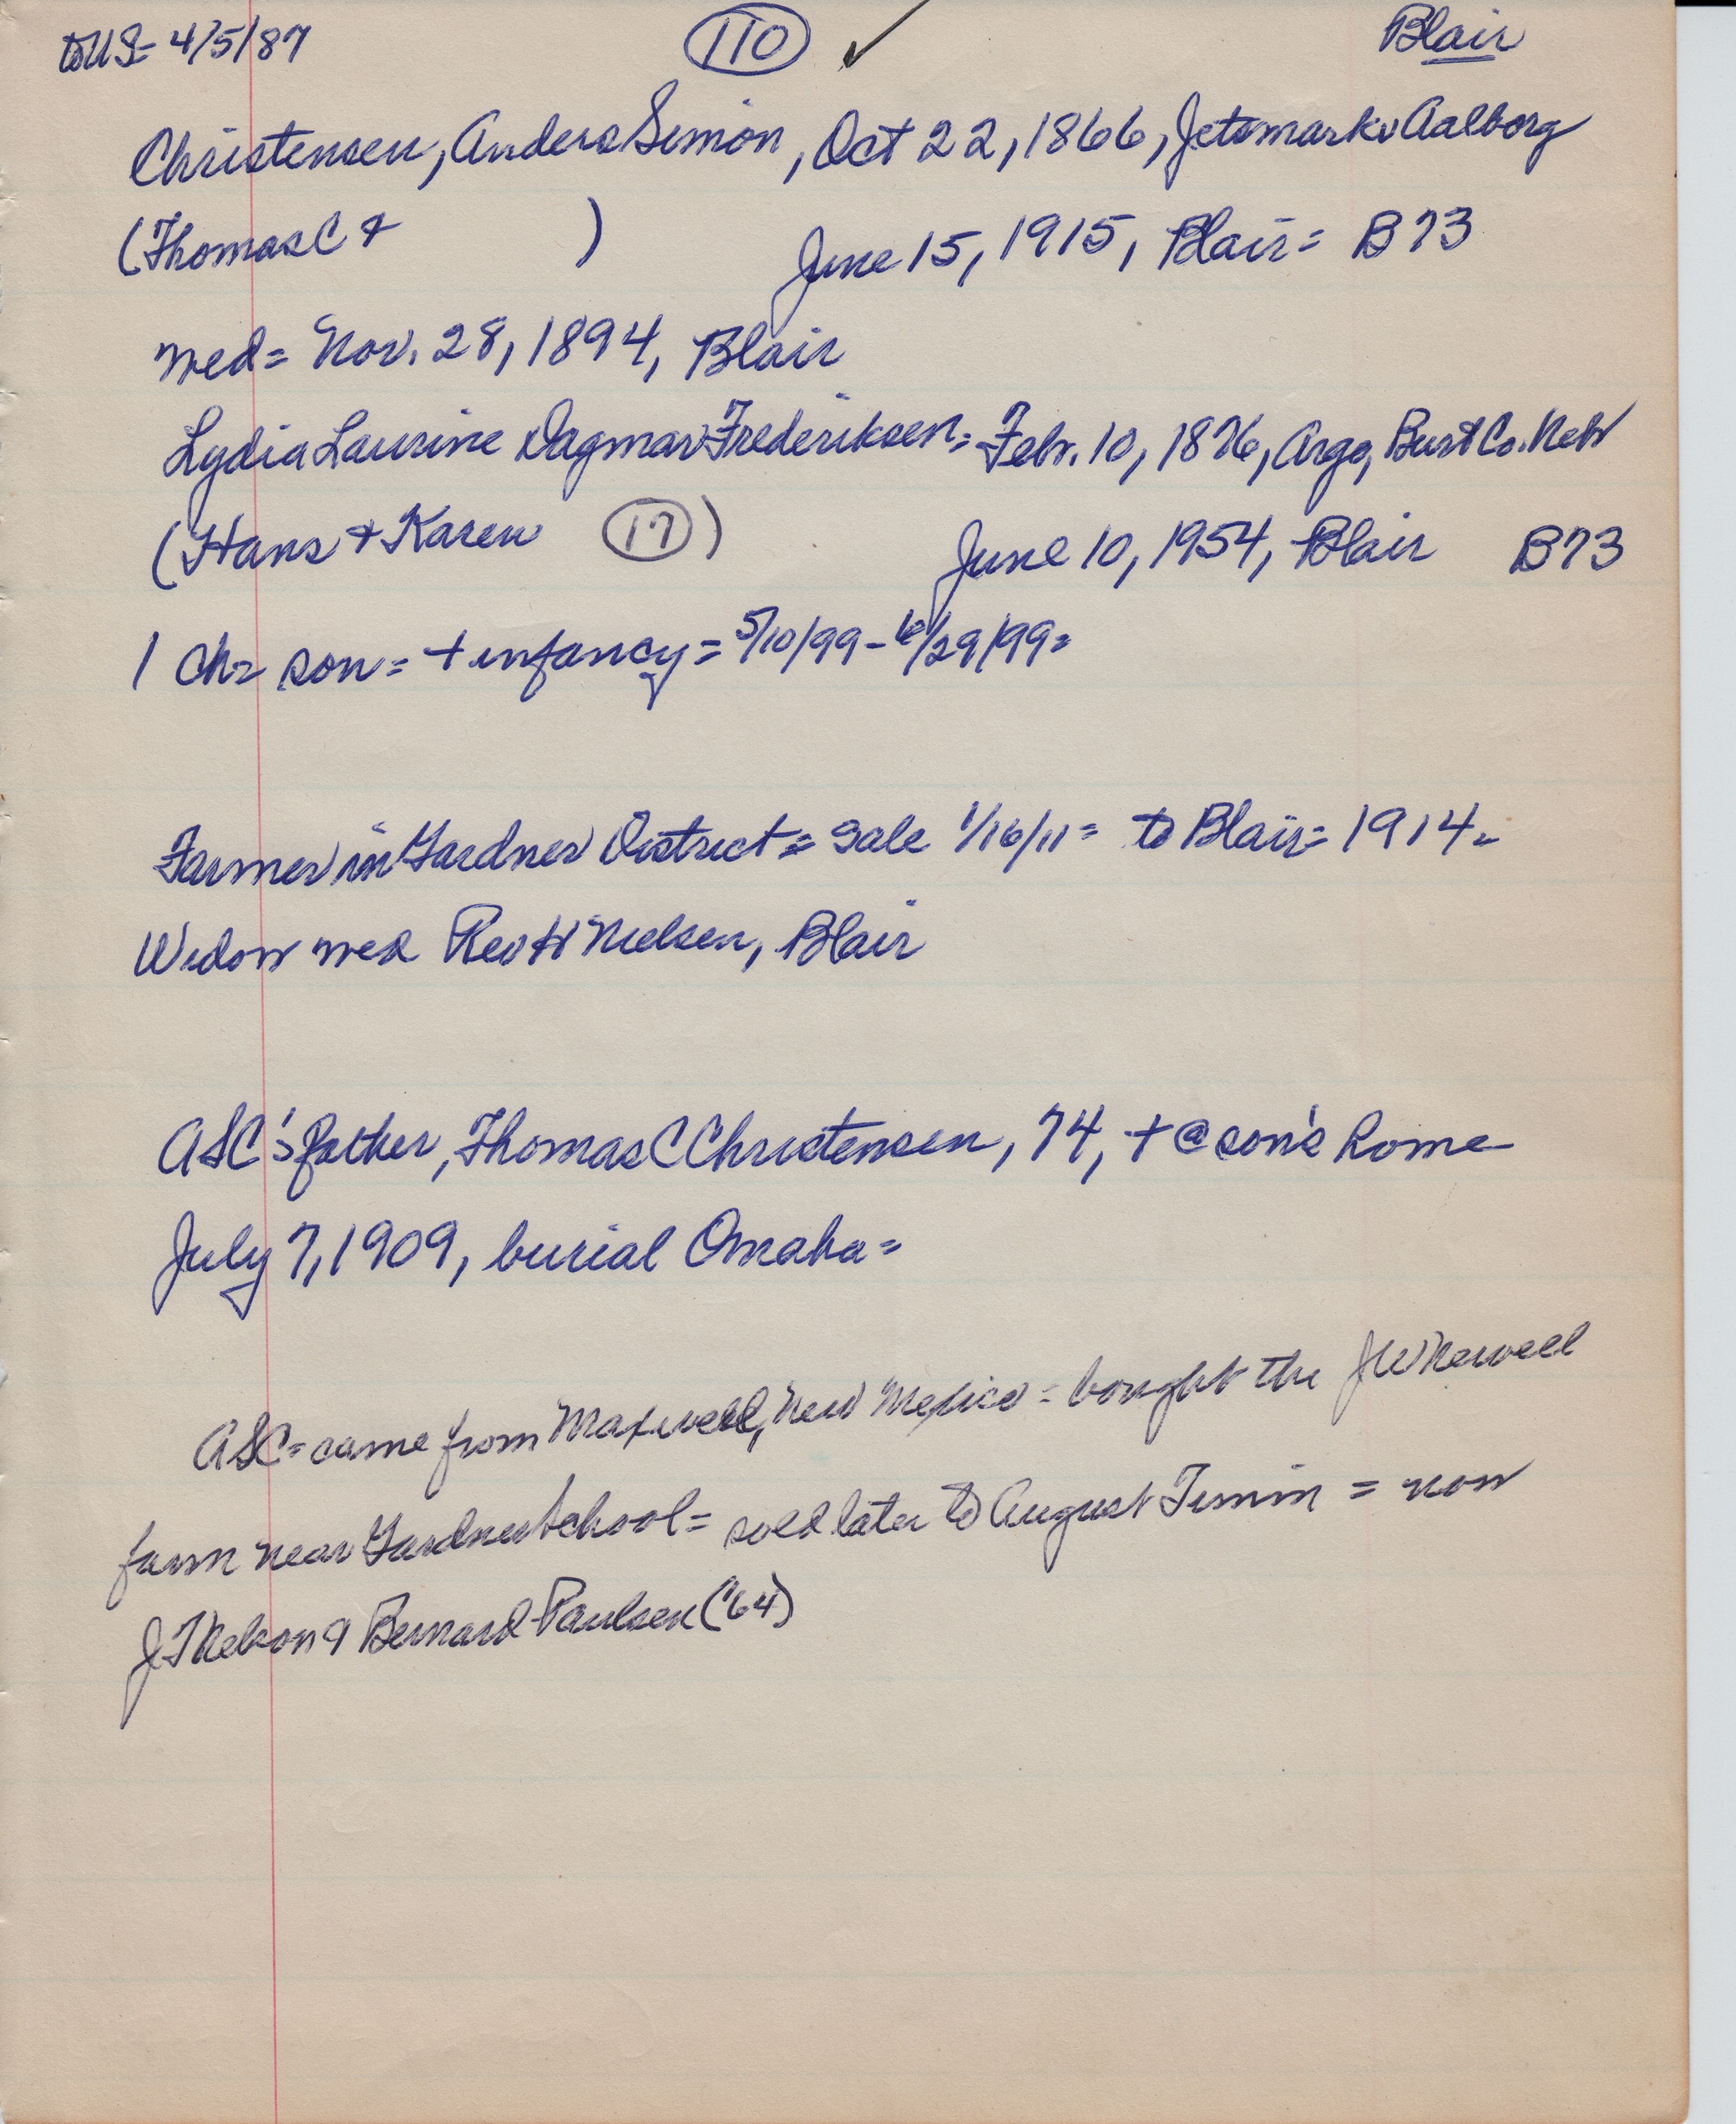 to US= 4/5/87 110 ✓ Blair
Christensen, Anders Simon, Oct 22, 1866, Jetsmark v Aalborg
(Thomas C + ) June 15, 1915, Blair= B73
wed= Nov. 28, 1894, Blair
Lydia Laurine Dagmar Frederiksen= Febr. 10, 1876, Argo, Burt Co. Neb
(Hans + Karen 17) June 10, 1954, Blair B73
1 ch= son= + infancy= 5/10/99 - 6/29/99=
Farmer in Gardner District= Sale 1/16/11= to Blair= 1914=
Widow wed Rev H Nielsen, Blair
ASC's father, Thomas C Christensen, 74, + @ son's home
July 7, 1909, burial Omaha=
ASC= came from Maxwell, New Mexico= bought the J W Newell
farm near Gardner School= sold later to August Timm = now
J T Nelson & Bernard Paulsen ('64)